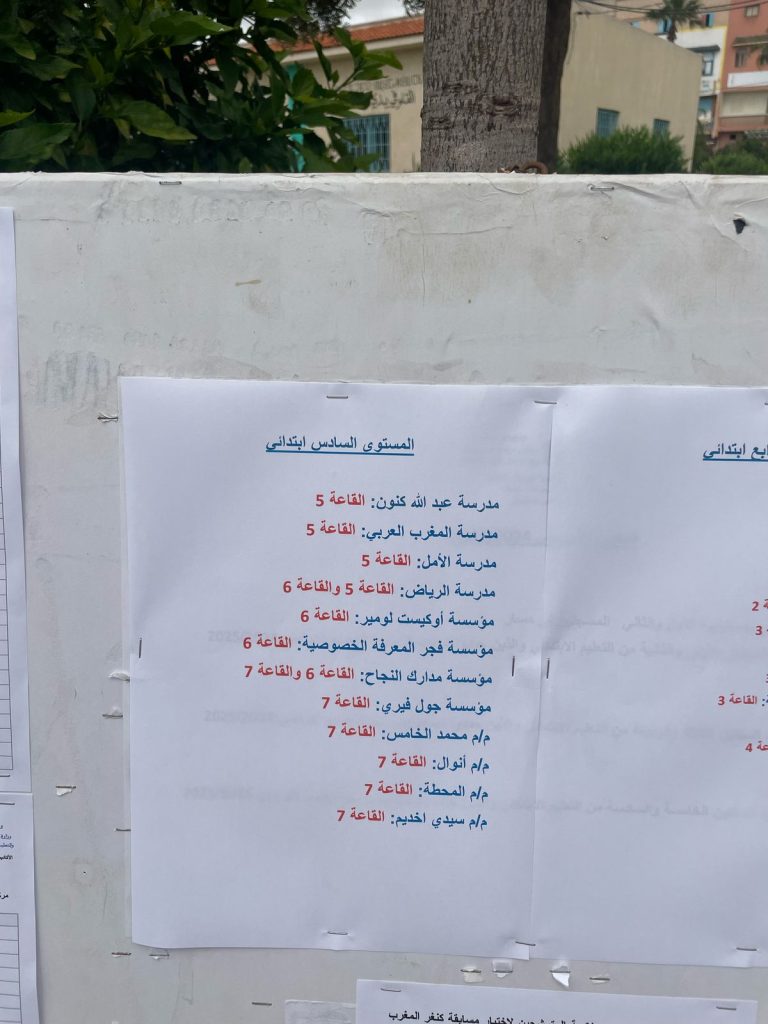 المستوى السادس ابتدائي
مدرسة عبد الله كنون: القاعة 5
مدرسة المغرب العربي: القاعة 5
مدرسة الأمل: القاعة 5
مدرسة الرياض: القاعة 5 والقاعة 6
مؤسسة أوكيست لومير: القاعة 6
مؤسسة فجر المعرفة الخصوصية: القاعة 6
مؤسسة مدارك النجاح: القاعة 6 والقاعة 7
مؤسسة جول فيري: القاعة 7
م/م محمد الخامس: القاعة 7
م/م أنوال: القاعة 7
م/م المحطة: القاعة 7
م/م سيدي اخديم: القاعة 7
ابتدائي
2
3
القاعة 3
4
لاختيار مسابقة كنغر المغرب